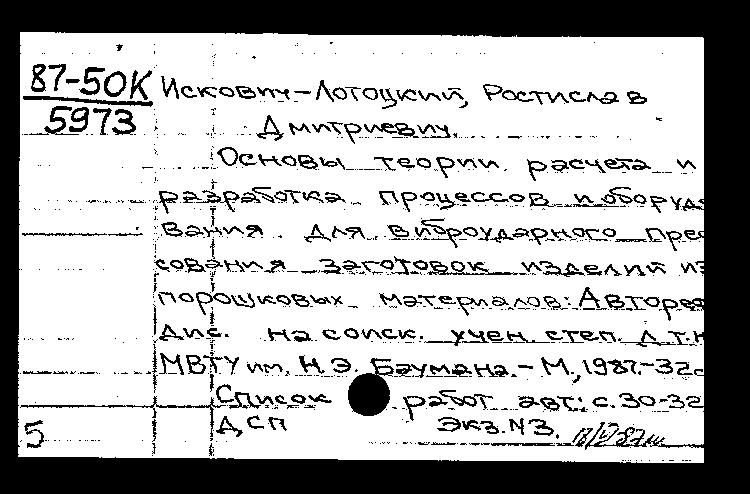 87-50К Искович-Лотоцкий, Ростислав
5973 Дмитриевич.
Основы теории расчета и
разработка процессов и оборудо
вания для виброударного прес
сования заготовок изделий из
порошковых материалов: Авторе
дис. на соиск. учен. степ. д.т.н
МВТУ им. Н.Э. Баумана. - М., 1987.-32с
Список работ авт.: с.30-32
5 ДСП Экз. №3.